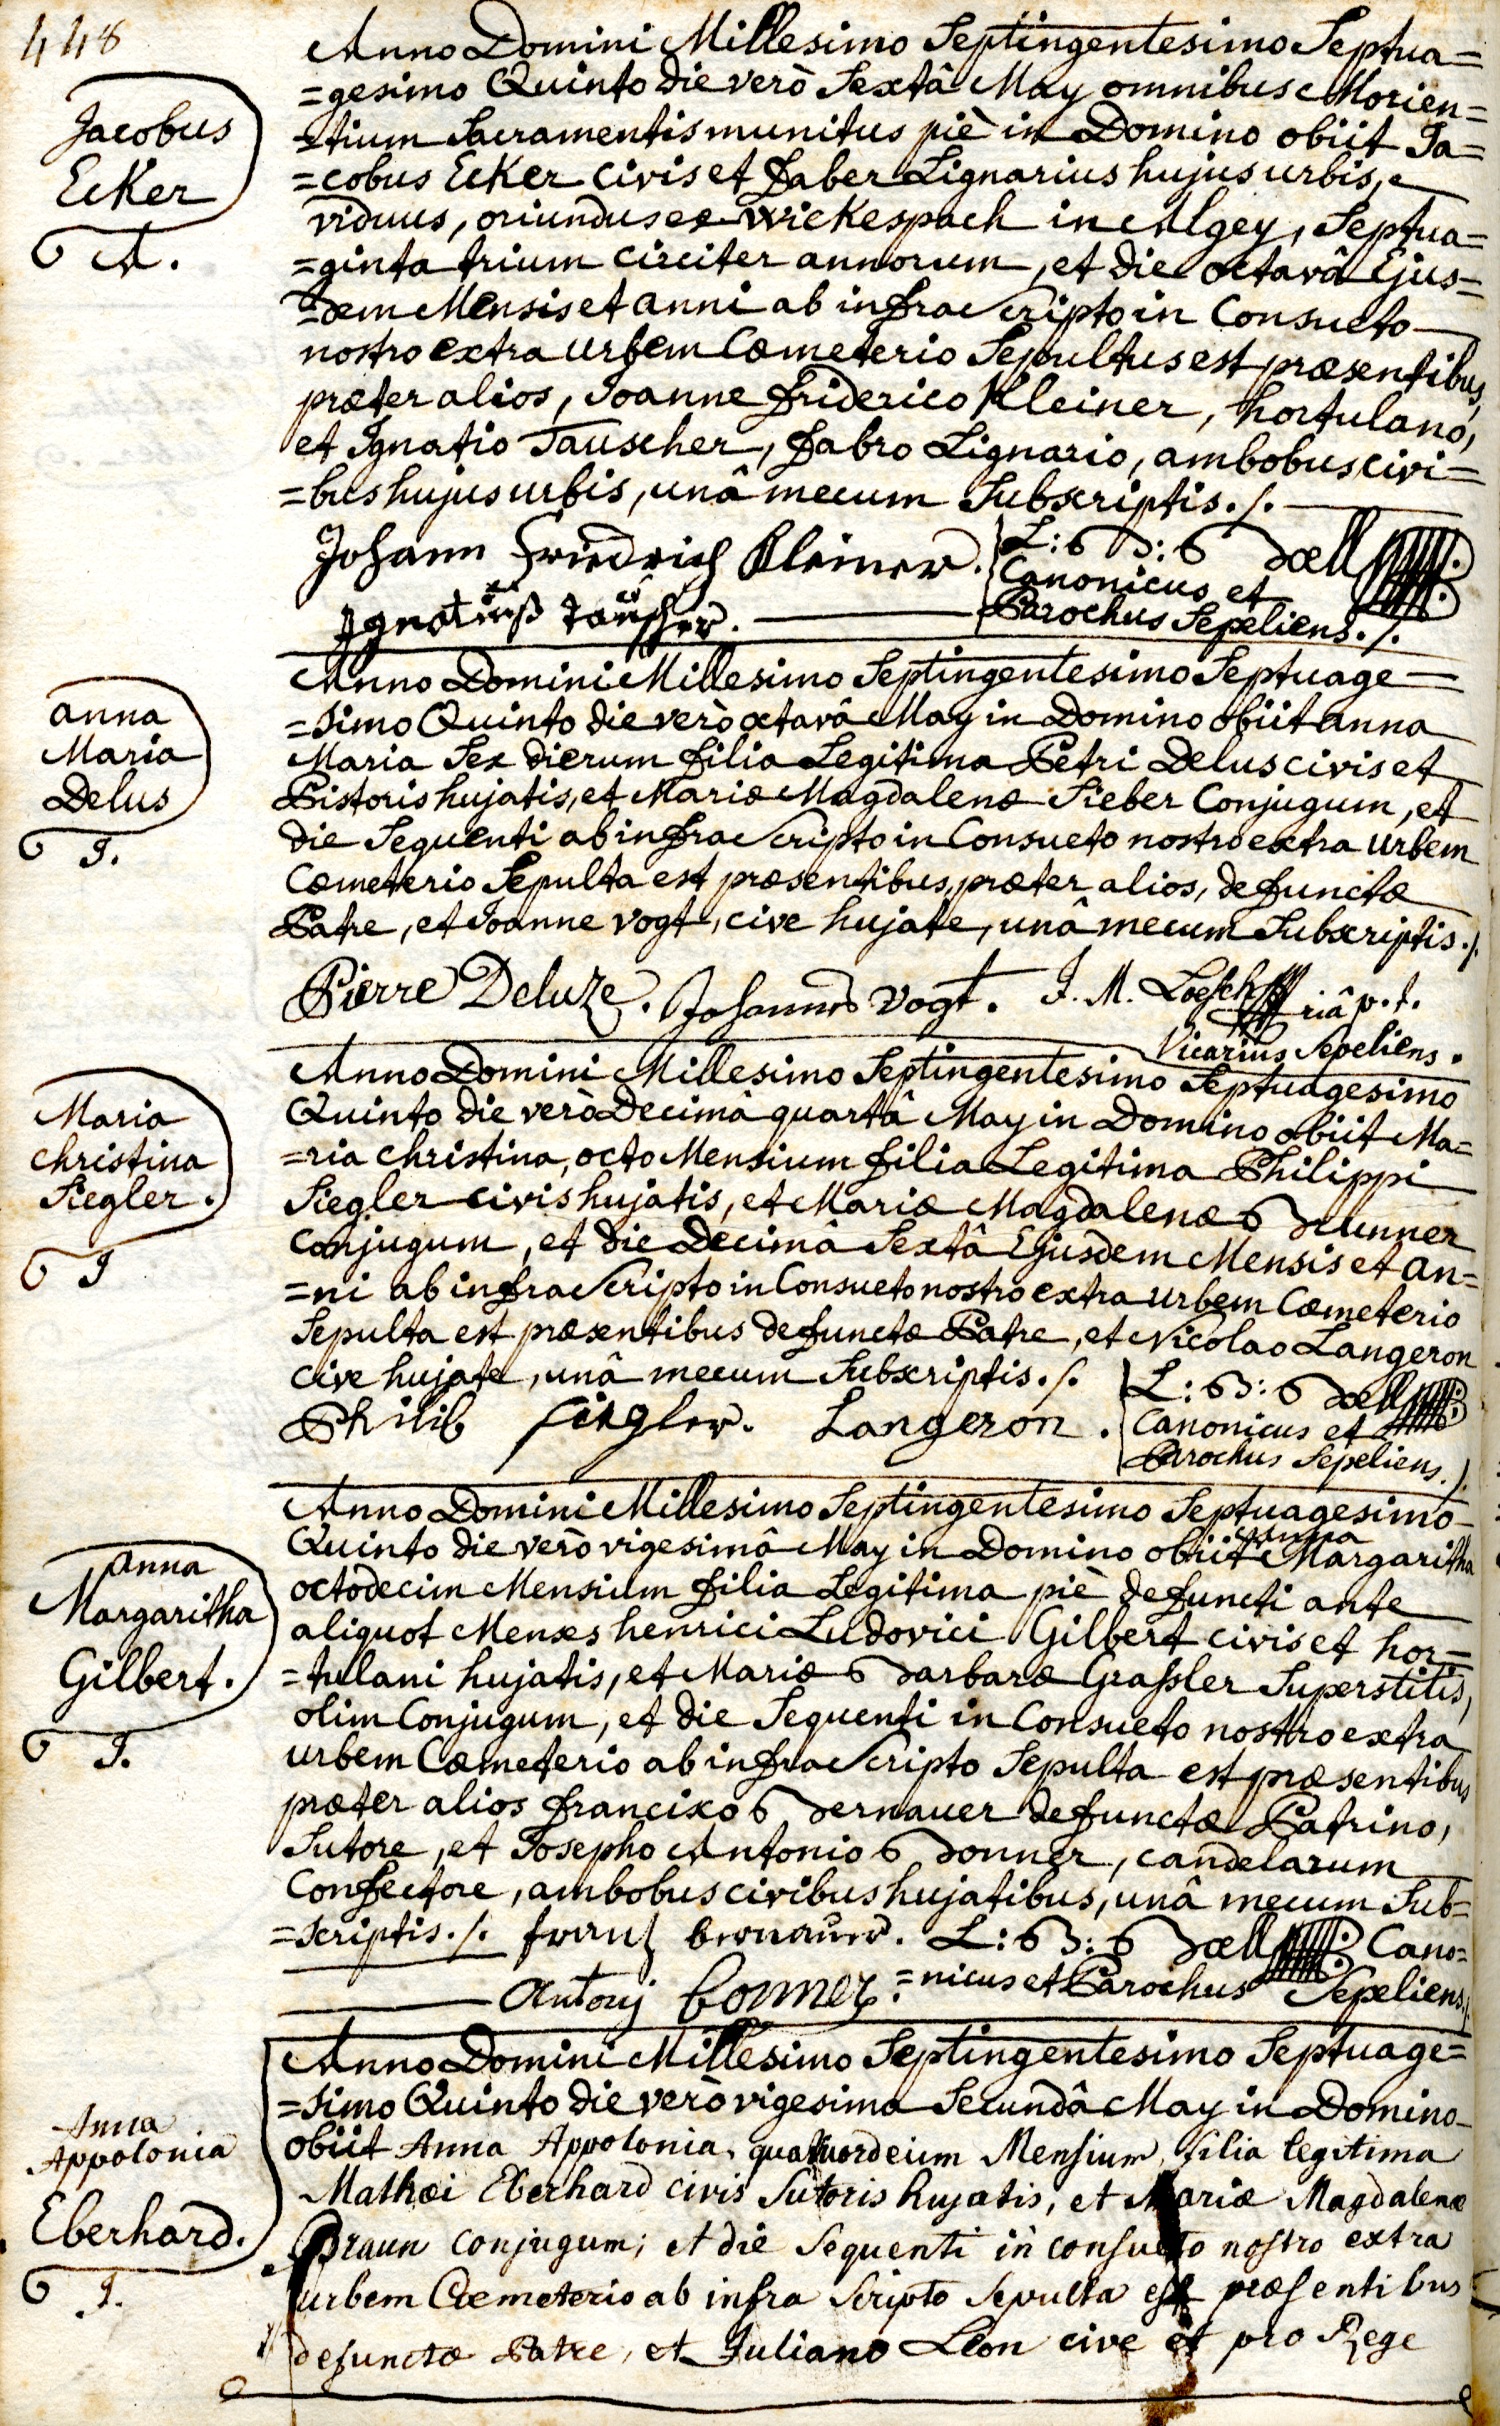 448
Jacobus
Ecker
A.
Anno Domini Millesimo Septingentesimo Septua=
=gesimo Quinto die verò Sextâ May omnibus Morien=
=tium Sacramentis munitus piè in Domino obiit Ja=
=cobus Ecker civis et Faber Lignarius hujus urbis,
viduus, oriundus ex Wickespach in Algey, Septua=
=ginta trium circiter annorum, et die octavâ Ejus=
=dem Mensis et anni ab infra Scripto in Consueto
nostro extra urbem Cœmeterio Sepultus est præsentibus,
præter alios, Joanne Friderico Kleiner, hortulano,
et Ignatio Tauscher, Fabro Lignario, ambobus civi=
=bus hujus urbis, unâ mecum Subscriptis ./.
Johann Friedrich Kleiner.
Ignatiuß Tauscher.
L: B: Bœll
Canonicus et
Parochus Sepeliens ./.
anna
Maria
Delus
J.
Anno Domini Millesimo Septingentesimo Septuage=
=simo Quinto die verò octavâ May in Domino obiit anna
Maria Sex dierum filia Legitima Petri Delus civis et
Pistoris hujatis, et Mariæ Magdalenæ Sieber Conjugum, et
die Sequenti ab infra Scripto in Consueto nostro extra urbem
Cœmeterio Sepulta est præsentibus, præter alios, defunctæ
Patre, et Joanne Vogt, cive hujate, unâ mecum Subscriptis ./.
Pierre Deluze. Johannes Vogt. J. M. Loesch riâ p.t.
Vicarius Sepeliens.
Maria
christina
Siegler.
J
Anno Domini Millesimo Septingentesimo Septuagesimo
Quinto die verò Decimâ quartâ May in Domino obiit Ma=
=ria christina, octo Mensium filia Legitima Philippi
Siegler civis hujatis, et Mariæ Magdalenæ Brunner
Conjugum, et die Decimâ Sextâ Ejusdem Mensis et an=
=ni ab infra Scripto in Consueto nostro extra urbem Cœmeterio
Sepulta est præsentibus defunctæ Patre, et Nicolao Langeron
cive hujate, unâ mecum Subscriptis ./.
Philib Siegler. Langeron.
L: B: Bœll
Canonicus et
Parochus Sepeliens ./.
anna
Margaritha
Gilbert.
J.
Anno Domini Millesimo Septingentesimo Septuagesimo
anna
Quinto die verò vigesimâ May in Domino obiit Margaritha
octodecim Mensium filia Legitima piè defuncti ante
aliquot Menses henrici Ludovici Gilbert civis et hor=
=tulani hujatis, et Mariæ Barbaræ Grassler Superstitis,
olim Conjugum, et die Sequenti in Consueto nostro extra
urbem Cœmeterio ab infra Scripto Sepulta est præsentibus
præter alios Francisco Bernauer defunctæ Patrino,
Sutore, et Josepho Antonio Bonner, candelarum
Confectore, ambobus civibus hujatibus, unâ mecum Sub=
=scriptis ./. frantz bernauer. L: B: Bœll Cano=
=nicus et Parochus Sepeliens ./.
Antoni bonner.
Anna
Appolonia
Eberhard.
J.
Anno Domini Millesimo Septingentesimo Septuage=
=simo Quinto die verò vigesima Secundâ May in Domino
obiit Anna Appolonia, quatuordecim Mensium filia legitima
Mathæi Eberhard civis Sutoris hujatis, et Mariæ Magdalenæ
Braun conjugum; et die Sequenti in consueto nostro extra
urbem Cœmeterio ab infra Scripto Sepulta est præsentibus
defunctæ Patre, et Juliano Léon cive et pro Rege